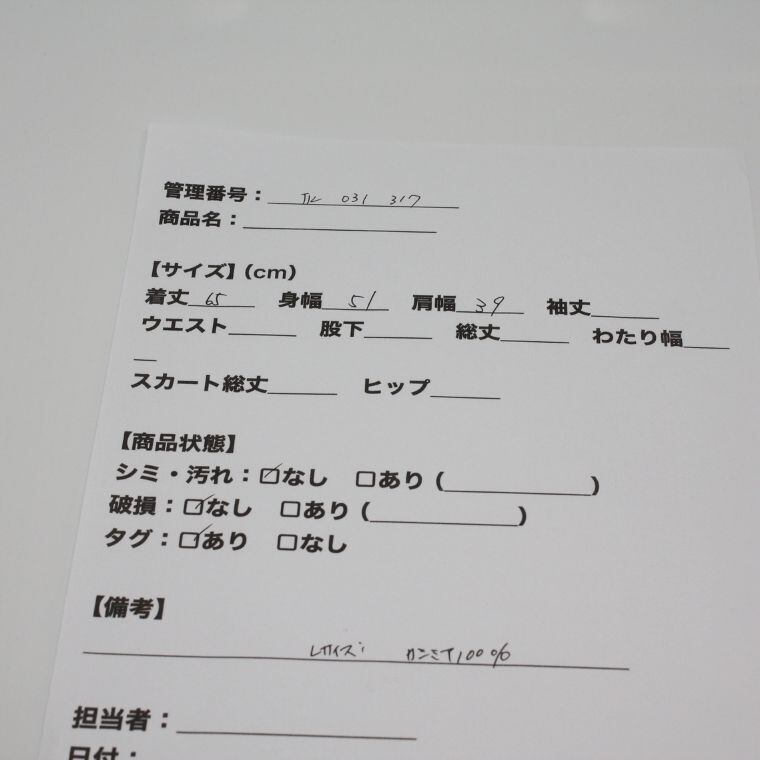 管理番号： 031 317
商品名：
【サイズ】(cm)
着丈 65 身幅 51 肩幅 39 袖丈
ウエスト 股下 総丈 わたり幅
スカート総丈 ヒップ
【商品状態】
シミ・汚れ：☑なし □あり（ ）
破損：☑なし □あり（ ）
タグ：☑あり □なし
【備考】
Lサイズ 100%
担当者：
日付：